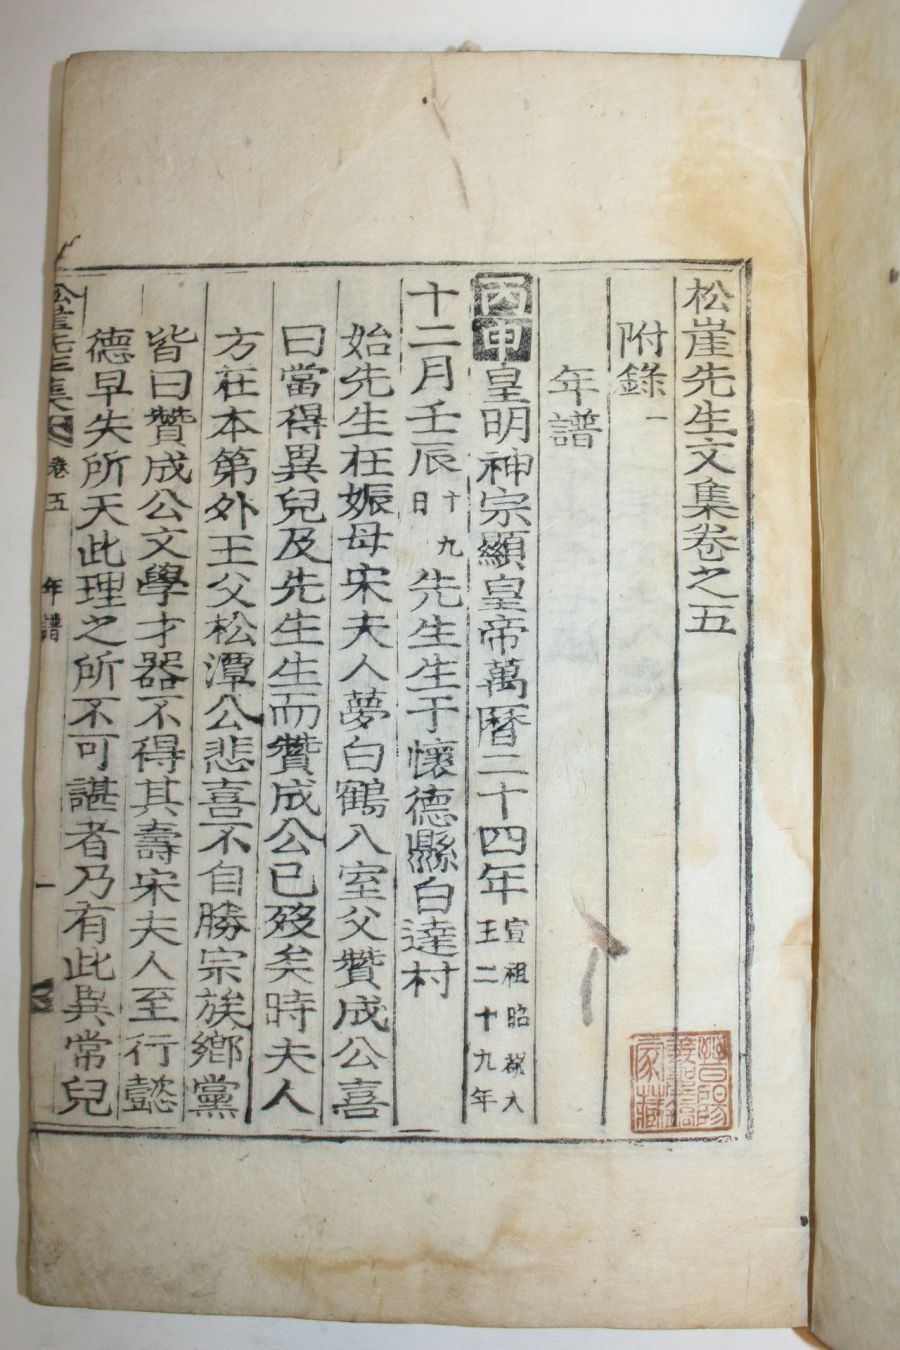 松崖先生文集卷之五
附錄一
年譜
丙申皇明神宗顯皇帝萬曆二十四年宣祖昭敬大王二十九年
十二月壬辰十九日先生生于懷德縣白達村
始先生在娠母宋夫人夢白鶴入室父贊成公喜
曰當得異兒及先生生而贊成公已歿矣時夫人
方在本第外王父松潭公悲喜不自勝宗族鄕黨
皆曰贊成公文學才器不得其壽宋夫人至行懿
德早失所天此理之所不可諶者乃有此異常兒
松崖先生集 卷五 年譜 一
晉陽
家藏